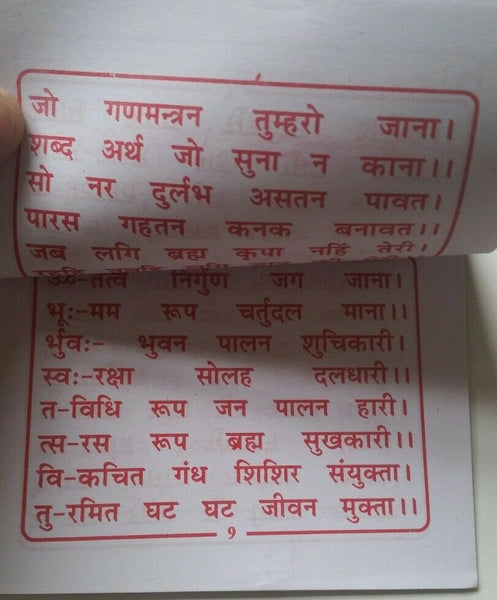 जो गणमन्त्रन तुम्हरो जाना।
शब्द अर्थ जो सुना न काना।।
सो नर दुर्लभ असतन पावत।
पारस गहतन कनक बनावत।।
जब लगि ब्रह्म कृपा नहिं तेरी।
ॐ-तत्व निर्गुण जग जाना।
भूः-मम रूप चर्तुदल माना।।
र्भुवः- भुवन पालन शुचिकारी।
स्वः-रक्षा सोलह दलधारी।।
त-विधि रूप जन पालन हारी।
त्स-रस रूप ब्रह्म सुखकारी।।
वि-कचित गंध शिशिर संयुक्ता।
तु-रमित घट घट जीवन मुक्ता।।
9